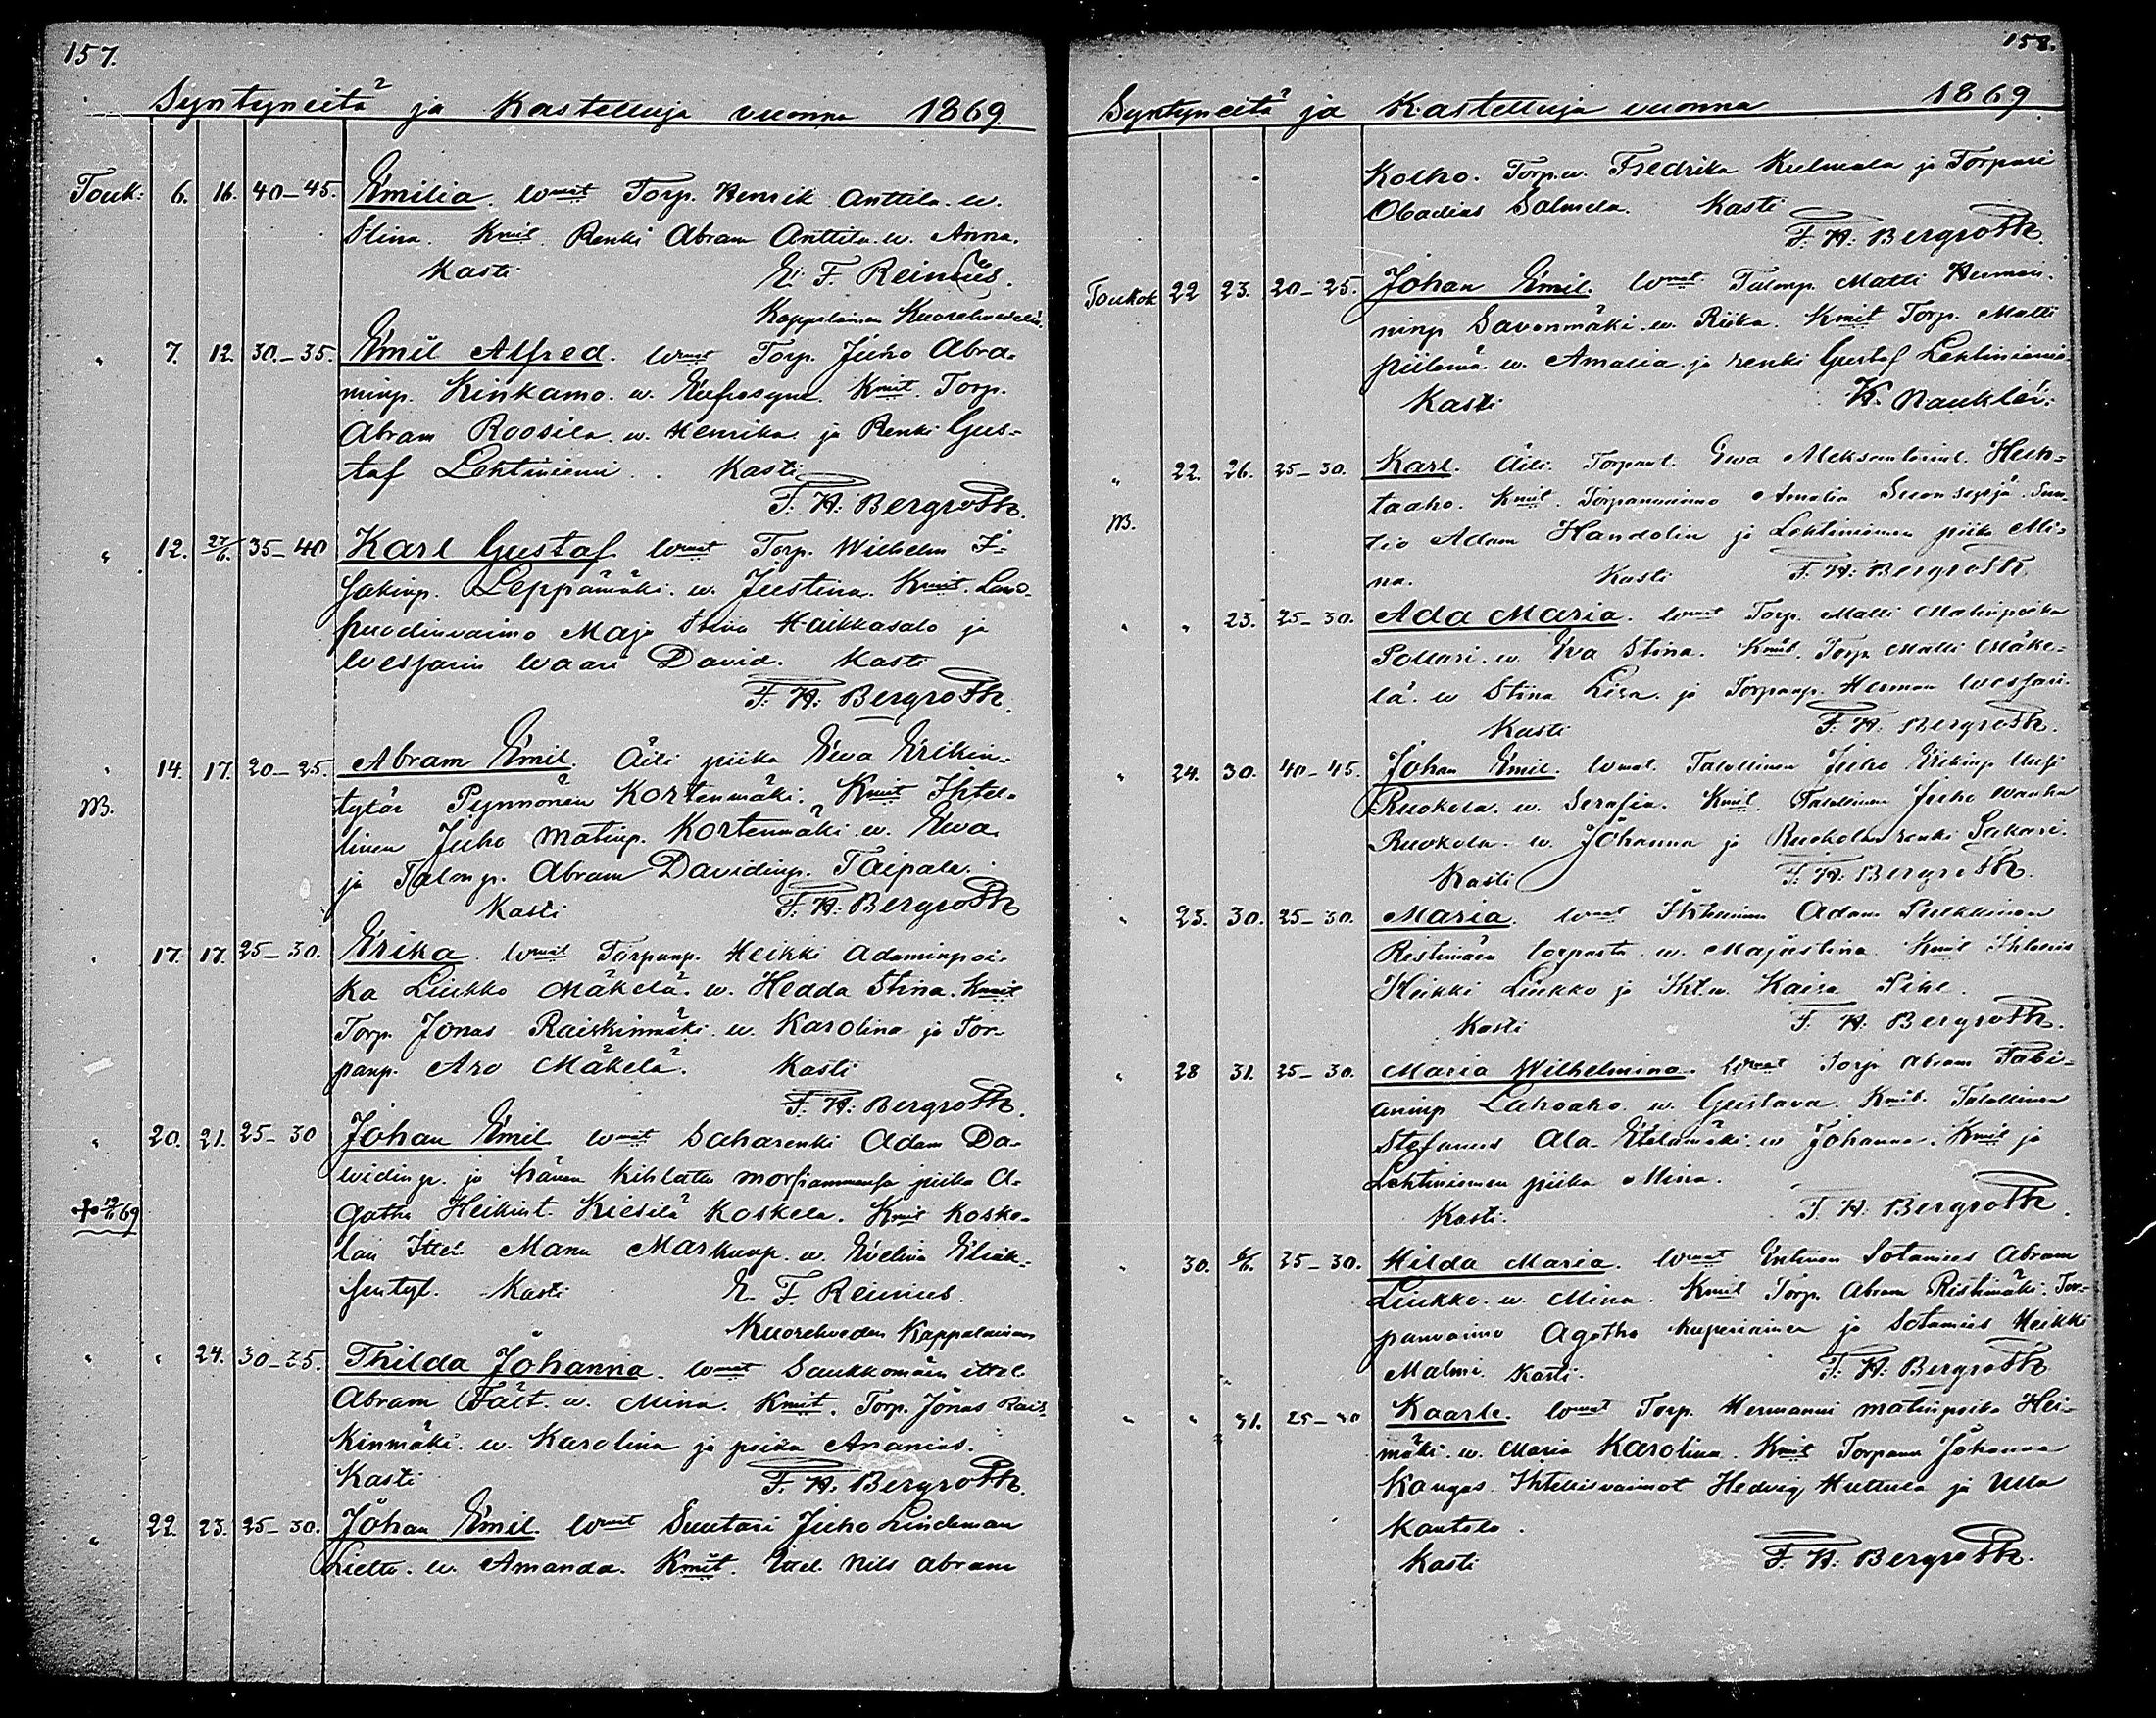 157.
Syntyneitä ja Kastettuja vuonna 1869.
Touk: 6. 16. 40-45. Emilia. Wmat Torp. Henrik Anttila. w.
Stina. Kmit. Renki Abram Anttila. w. Anna.
Kasti E. F. Reinius.
Kappalainen
" 7. 12. 30-35. Emil Alfred. Wmat Torp. Juho Abra-
minp. Kinkamo. w. Eufrosyne. Kmit. Torp.
Abram Roosila. w. Henrika. ja Renki Gus-
taf Lehtiniemi. Kasti
F. H: Bergroth.
" 12. 27/6. 35-40 Karl Gustaf Wmat Torp. Wilhelm I-
sakinp. Leppämäki. w. Justina. Kmit.
vaimo Maja Stina Haikkasalo ja
Wessarin Waari David. Kasti
F. H: Bergroth.
" 14. 17. 20-25. Abram Emil. Äiti piika Ewa Erikin-
B. tytär Pynnönen Kortenmäki. Kmit Ihtel-
linen Juho Matinp. Kortenmäki w. Ewa.
ja Talonp. Abram Davidinp. Taipale.
Kasti F. H: Bergroth
" 17. 17. 25-30. Erika. Wmat Torpanp. Heikki Adaminpoi-
ka Liukko Mäkelä. w. Hedda Stina. Kmit
Torp. Jonas Raiskinmäki w. Karolina ja Tor-
panp. Aro Mäkelä. Kasti
F. H: Bergroth.
" 20. 21. 25-30 Johan Emil Wmat Saharenki Adam Da-
widinp. ja hänen kihlattu morsiammensa piika A-
+ 69 gatha Heikint. Kiesilä Koskela. Kmit Koske-
lan Ittel. Manu Markunp. w. Evelina Eliak-
sentyt. Kasti E. F. Reinius.
Kuoreveden Kappalainen
" " 24. 30-35. Thilda Johanna. Wmat Saukkomäen ittel.
Abram Fält. w. Mina. Kmit. Torp. Jonas Rais-
kinmäki. w. Karolina ja poika Ananias.
Kasti F. H. Bergroth.
" 22. 23. 25-30. Johan Emil. Wmat Suutari Juho Lindeman
w. Amanda. Kmit. Ittel. Nils Abram
158.
Syntyneitä ja Kastettuja vuonna 1869
Kolho. Torp.w. Fredrika Kulmala ja Torpari
Obadias Salmela. Kasti
F. H: Bergroth.
Toukok 22 23. 20-25. Johan Emil. Wmat Talonp. Matti Herman-
ninp Savonmäki w. Riika. Kmit Torp. Matti
w. Amalia ja renki Gustaf Lehtiniemi
Kasti K. Naukler.
" 22. 26. 25-30. Karl. Äiti. Torpant. Ewa Aleksanterint. Huh-
B. taaho. Kmit. Torpanvaimo Amalia
Adam Handolin ja Lehtiniemen piika Mi-
na. Kasti F. H: Bergroth
" " 23. 25-30. Ada Maria. Wmat Torp. Matti Matinpoika
Pollari. w. Eva Stina. Kmit. Torp. Matti Mäke-
lä. w Stina Lisa. ja Torpanp. Herman Wessari.
Kasti F. H: Bergroth.
" 24. 30. 40-45. Johan Emil. Wmat. Talollinen Juho Erikinp Uusi
Ruokola. w. Serafia. Kmit. Talollinen Juho Wanha
Ruokola. w. Johanna ja Ruokolan renki Sakari.
Kasti F. H: Bergroth.
" 25. 30. 25-30. Maria. Wmat Ihtellinen Adam Pulkkinen
Ristimäen torpasta. w. Majastina Kmit
Heikki Liukko ja Iht.w. Kaisa Pihl.
Kasti F. H: Bergroth.
" 28 31. 25-30. Maria Wilhelmina. Wmat Torp Abram Fabi-
aninp Lahoaho. w. Gustava. Kmit. Talollinen
Stefanus Ala-Eteläamäki. w Johanna. Kmit ja
Lehtiniemen piika Mina.
Kasti. F. H: Bergroth.
" 30. 6/6. 25-30. Hilda Maria. Wmat Entinen Sotamies Abram
Liukko. w. Mina. Kmit Torp. Abram Ristimäki. Tor-
panvaimo Agatha ja Sotamies Heikki
Malmi. Kasti. F. H: Bergroth
" " 31. 25-30 Kaarle. Wmat Torp. Hermanni Matinpoika Hei-
mäki. w. Maria Karolina. Kmit Torpanw Johanna
Kangas. Ihtellisvaimot Hedvig Huttula ja Ulla
Kautola.
Kasti F. H: Bergroth.